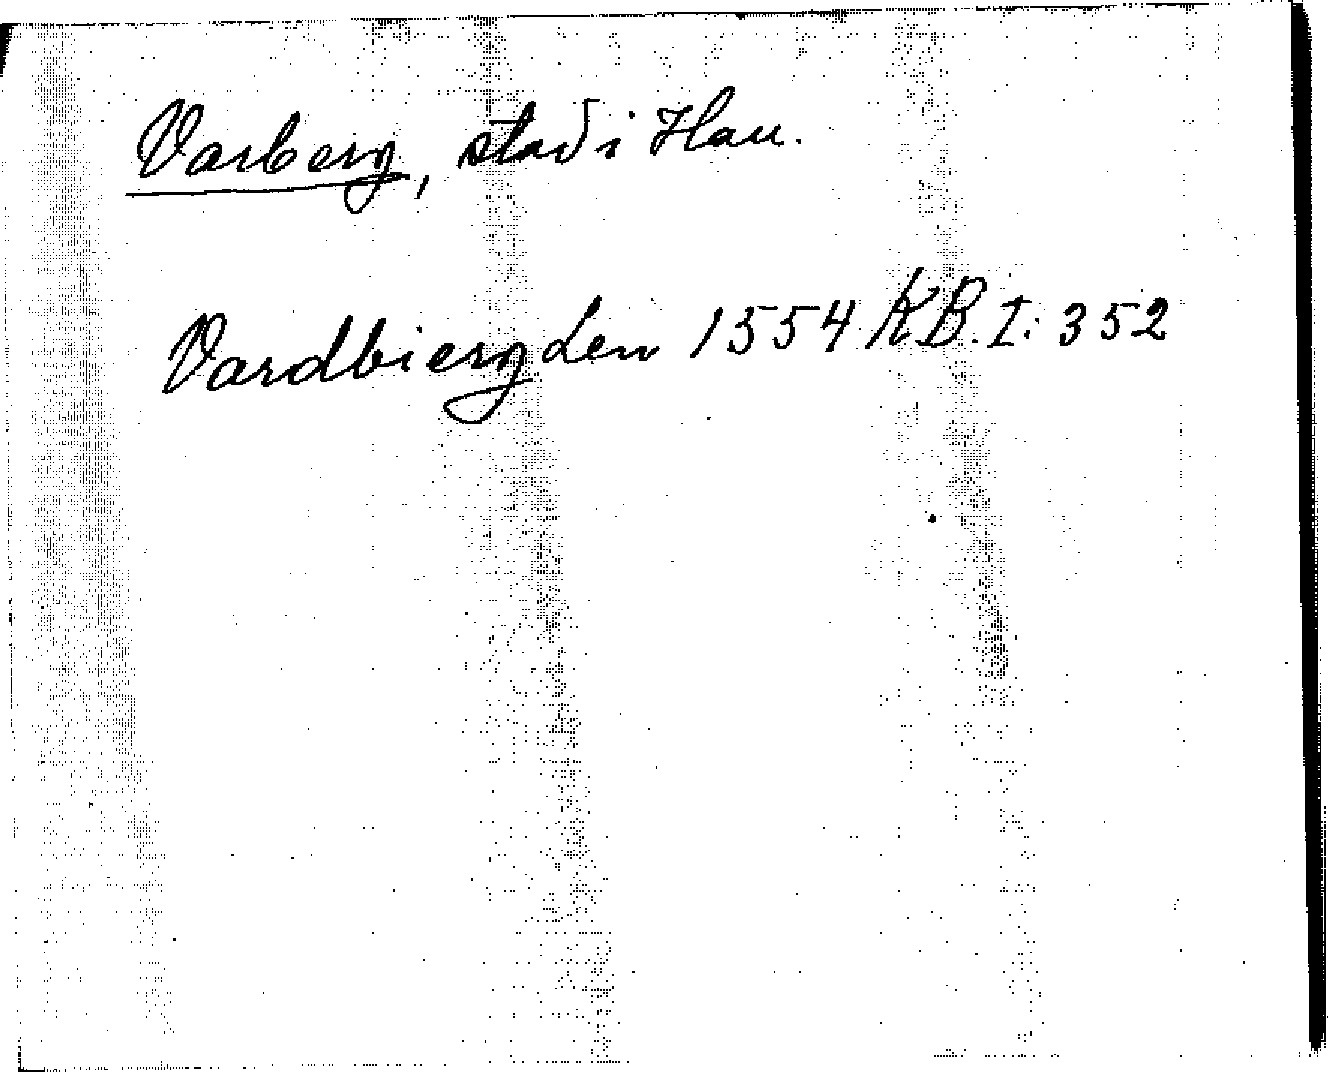 Varberg, stad i Hall.
Vardbierg Len 1554 KB. I: 352